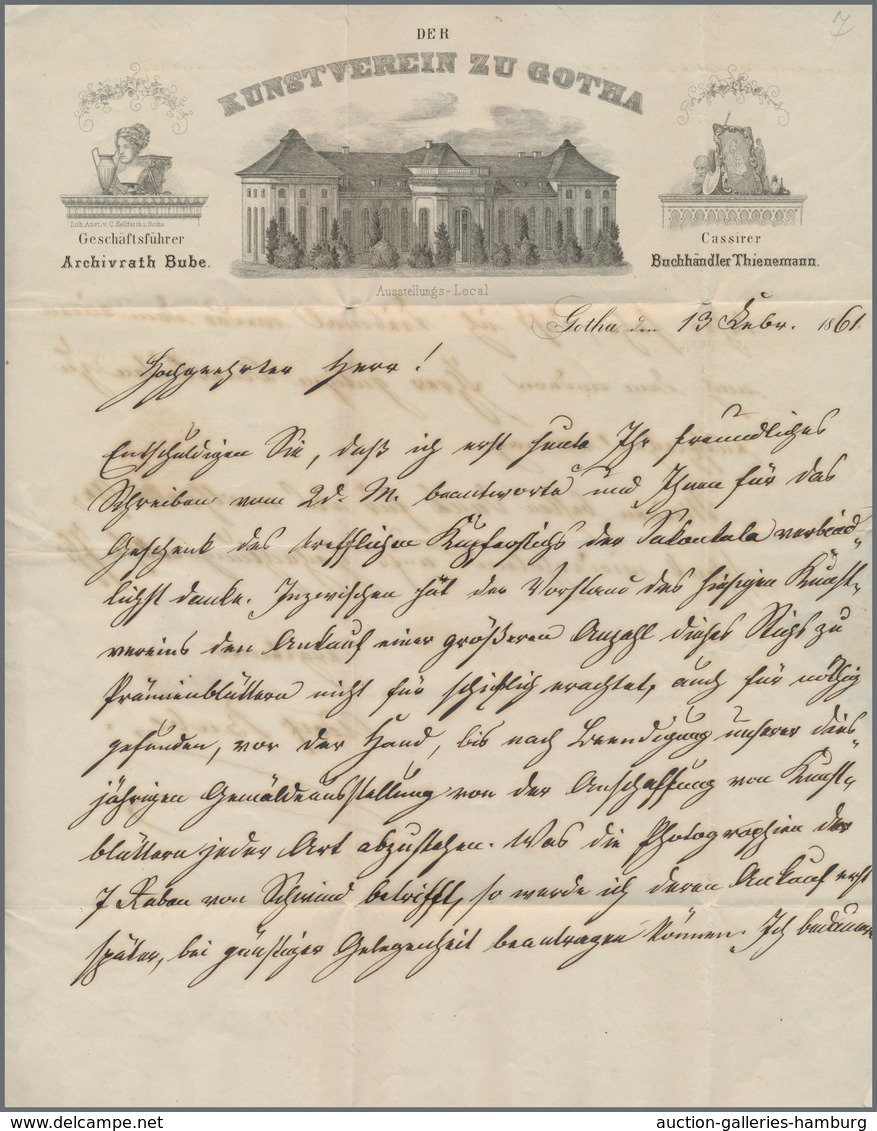 7
DER
KUNSTVEREIN ZU GOTHA
Lith. Anst. v. C. Hellfarth i. Gotha
Geschäftsführer
Archivrath Bube.
Cassirer
Buchhändler Thienemann.
Ausstellungs-Local
Gotha, den 13 Febr. 1861
Hochgeehrter Herr!
Entschuldigen Sie, daß ich erst heute Ihr freundliches
Schreiben vom 2 d. M. beantworte und Ihnen für das
Geschenk des trefflichen Kupferstichs der Sakontala verbind-
lichst danke. Inzwischen hat der Vorstand des hiesigen Kunst-
vereins den Ankauf einer größeren Anzahl dieses Stichs zu
Prämienblättern nicht für schicklich erachtet, auch für nöthig
gefunden, vor der Hand, bis nach Beendigung unserer dies-
jährigen Gemäldeausstellung von der Anschaffung von Kunst-
blättern jeder Art abzustehen. Was die Photographien der
7 Raben von Schwind betrifft, so werde ich deren Ankauf erst
später, bei günstiger Gelegenheit beantragen können. Ich bedauere
auction-galleries-hamburg